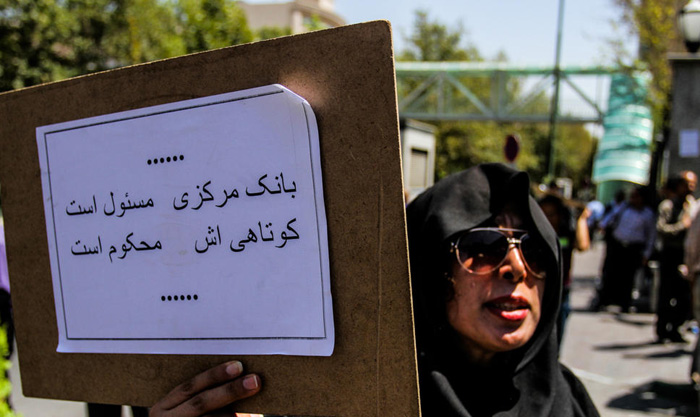 ••••••
بانک مرکزی مسئول است
کوتاهی اش محکوم است
••••••